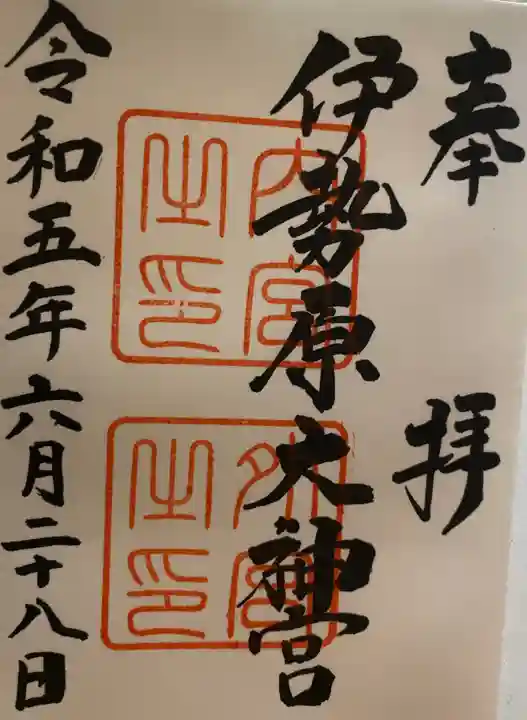 奉拝
伊勢原大神宮
内宮之印
外宮之印
令和五年六月二十八日